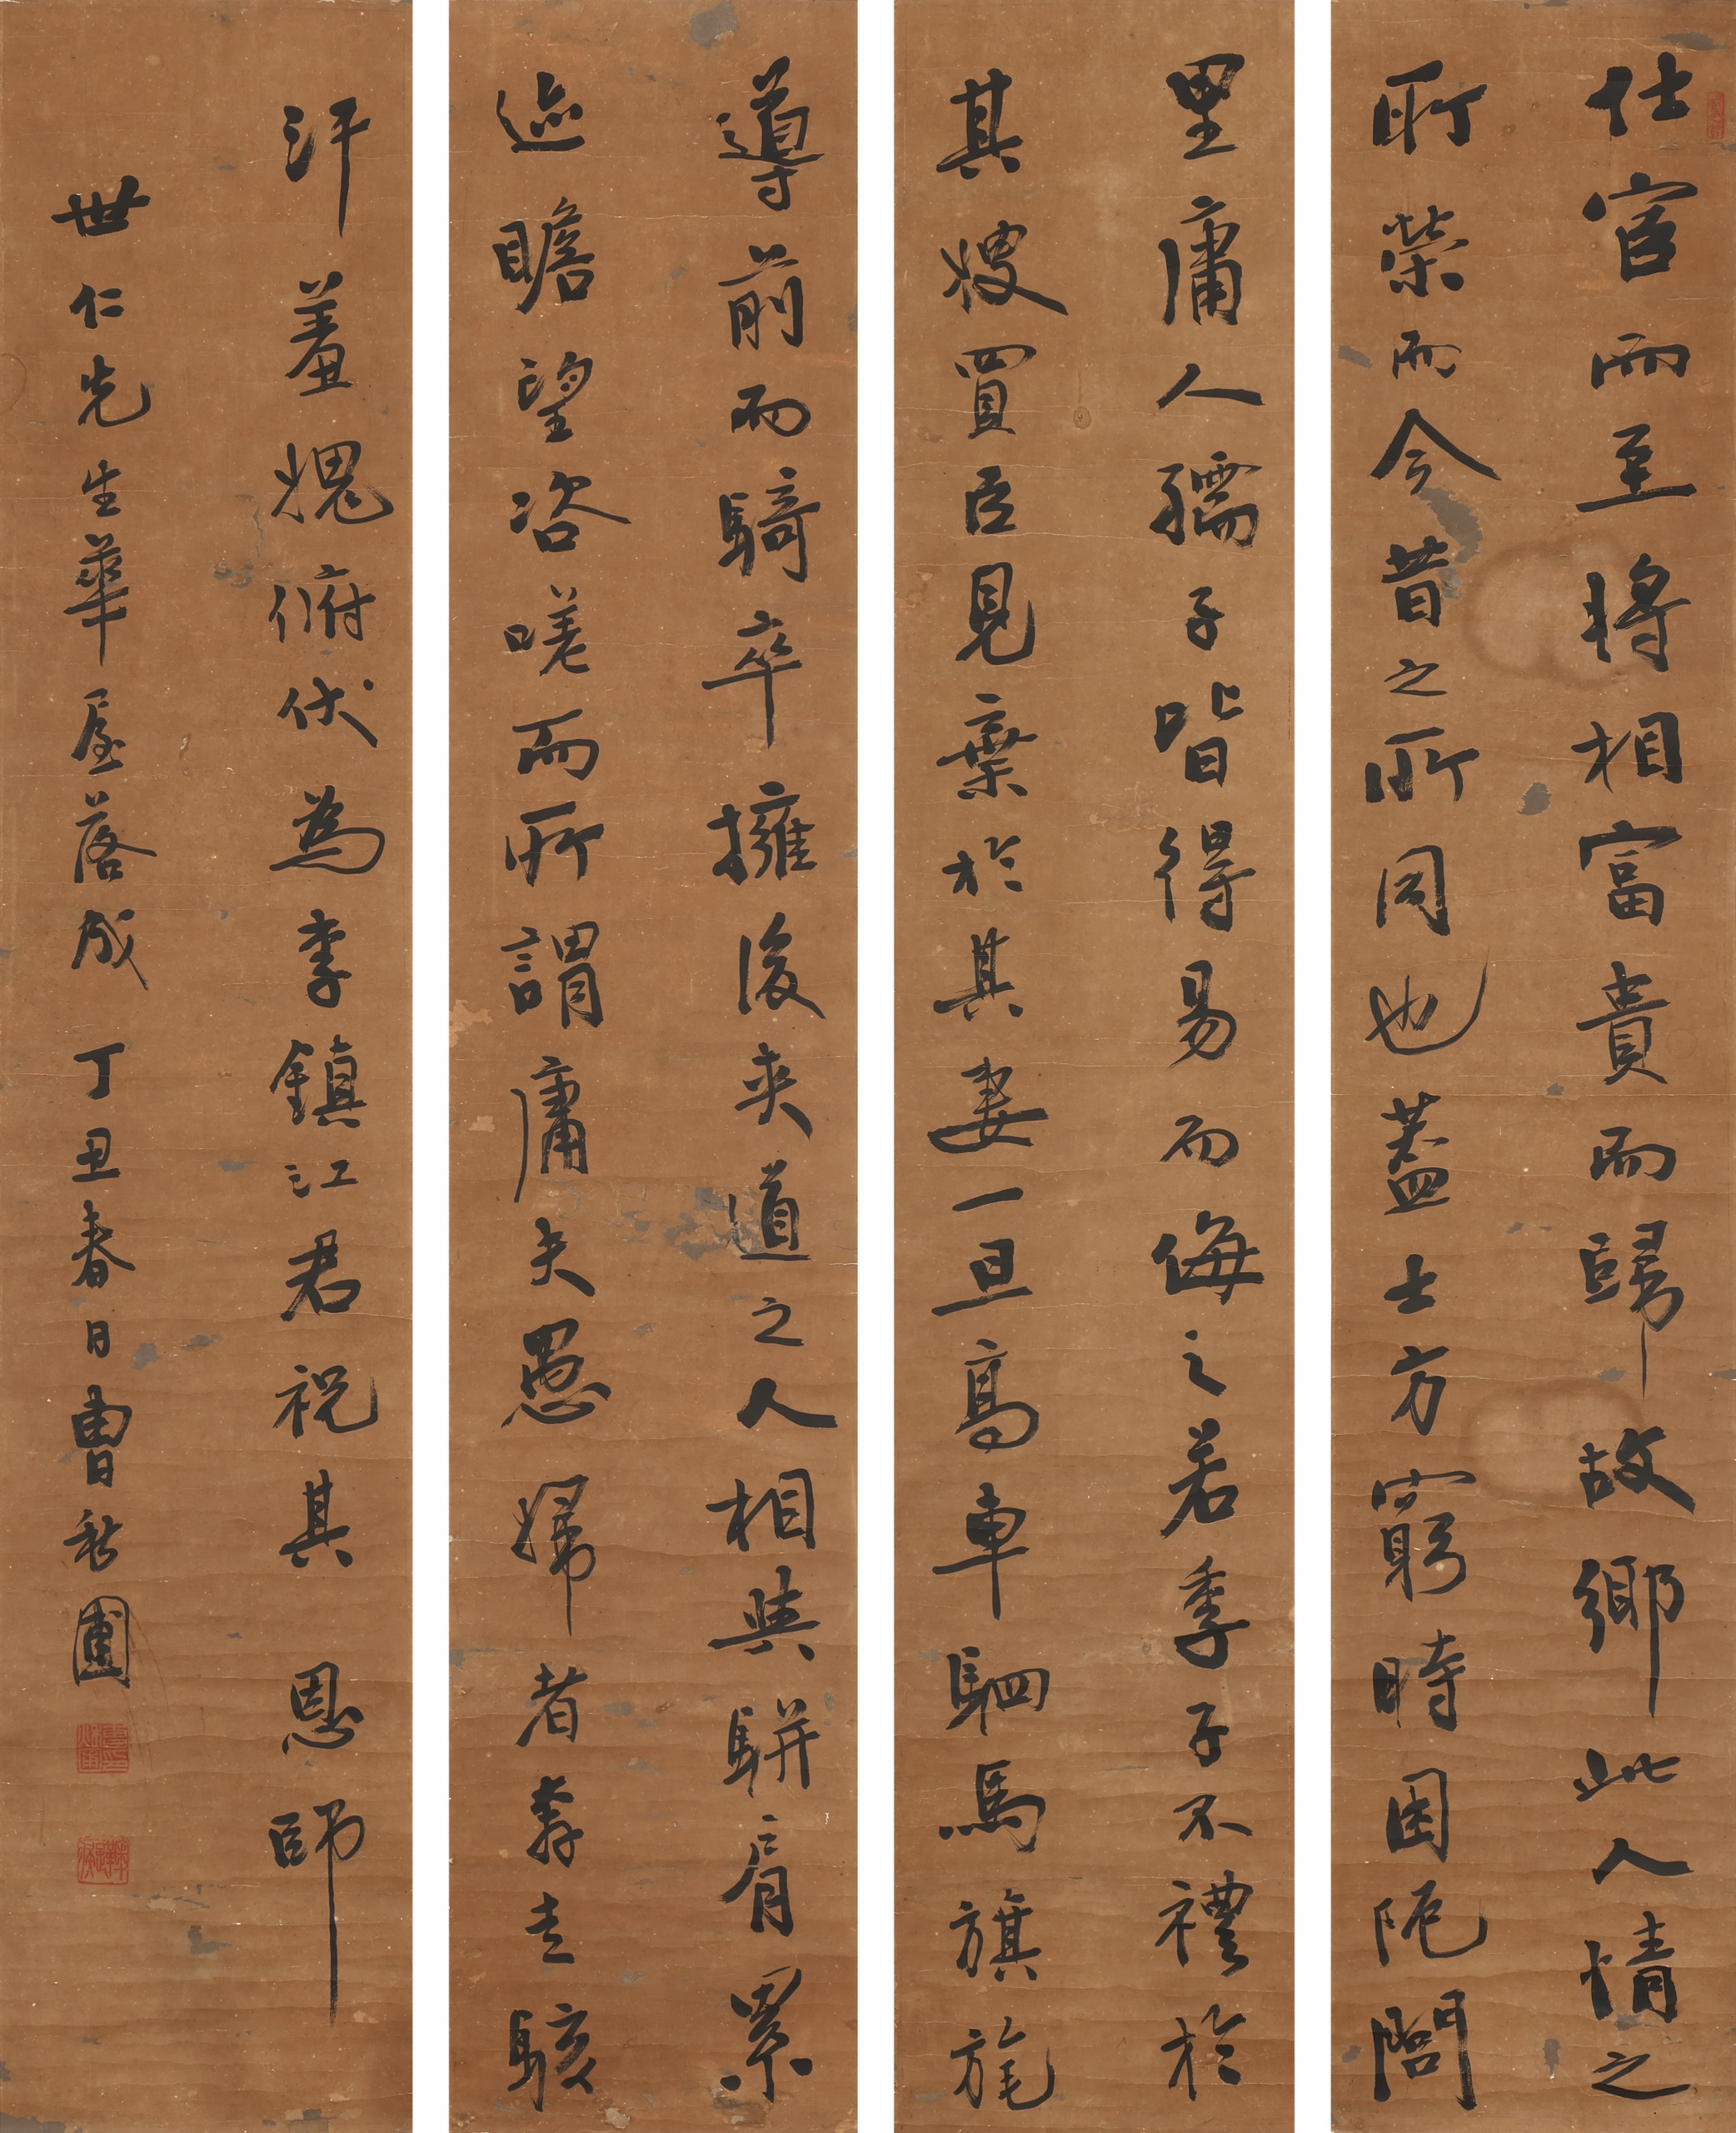 仕宦而至將相富貴而歸故鄉此人情之
所榮而今昔之所同也蓋士方窮時困阨閭
里庸人孺子皆得易而侮之若季子不禮於
其嫂買臣見棄於其妻一旦高車駟馬旗旄
導前而騎卒擁後夾道之人相與駢肩累
迹瞻望咨嗟而所謂庸夫愚婦者奔走駭
汗羞愧俯伏為李鎮江君祝其恩師
世仁先生華屋落成丁丑春日曹秋圃